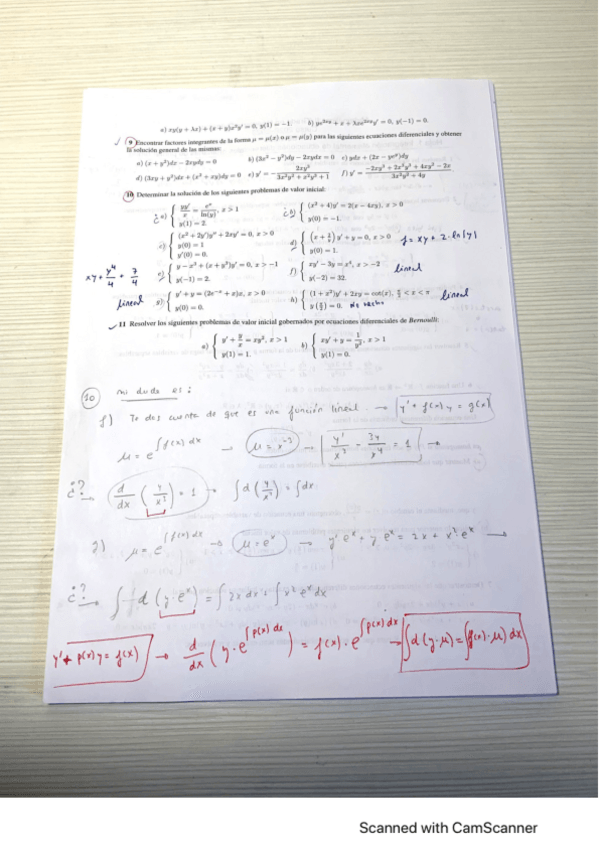 a) xy(y + λx) + (x + y)x²y' = 0, y(1) = −1. b) ye²ˣʸ + x + λxe²ˣʸy' = 0, y(−1) = 0.
✓ 9 Encontrar factores integrantes de la forma μ = μ(x) o μ = μ(y) para las siguientes ecuaciones diferenciales y obtener
la solución general de las mismas:
a) (x + y²)dx − 2xydy = 0 b) (3x² − y²)dy − 2xydx = 0 c) ydx + (2x − yeʸ)dy
d) (3xy + y²)dx + (x² + xy)dy = 0 e) y' = f) y' =
10 Determinar la solución de los siguientes problemas de valor inicial:
¿ a) { yy'/x = eˣ/ln(y), x > 1
y(1) = 2.
¿ b) { (x² + 4)y' = 2(x − 4xy), x > 0
y(0) = −1.
c) { (x² + 2y')y'' + 2xy' = 0, x > 0
y(0) = 1
y'(0) = 0.
d) { y' + y = 0, x > 0
y(0) = 1.
f = xy + 2·ln|y|
xy + y⁴/4 + 7/4
e) { y − x³ + (x + y³)y' = 0, x > −1
y(−1) = 2.
f) { xy' − 3y = x⁴, x > −2
y(−2) = 32.
lineal
lineal
g) { y' + y = (2e⁻ˣ + x)x, x > 0
y(0) = 0.
h) { (1 + x²)y' + 2xy = cot(x), π/2 < x < π
y(π/2) = 0.
lineal
11 Resolver los siguientes problemas de valor inicial gobernados por ecuaciones diferenciales de Bernoulli:
a) { y' + y/x = xy², x > 1
y(1) = 1.
b) { xy' + y = 1/y², x > 1
y(1) = 0.
10 mi duda es:
f) Te das cuenta de que es una función lineal → y' + f(x)y = g(x)
μ = e^∫f(x) dx → μ = x⁻³ → y'/x³ − 3y/x⁴ = 1 →
¿? → d/dx (y/x³) = 1 → ∫ d(y/x³) = ∫dx
g) μ = e^∫f(x) dx → μ = eˣ → y'eˣ + y eˣ = 2x + x²eˣ →
¿? → ∫ d (y·eˣ) = ∫2x dx + ∫x² eˣ dx
y' + p(x)y = f(x) → d/dx (y·e^∫p(x) dx) = f(x)·e^∫p(x) dx → ∫d(y·μ) = ∫(f(x)·μ) dx
Scanned with CamScanner